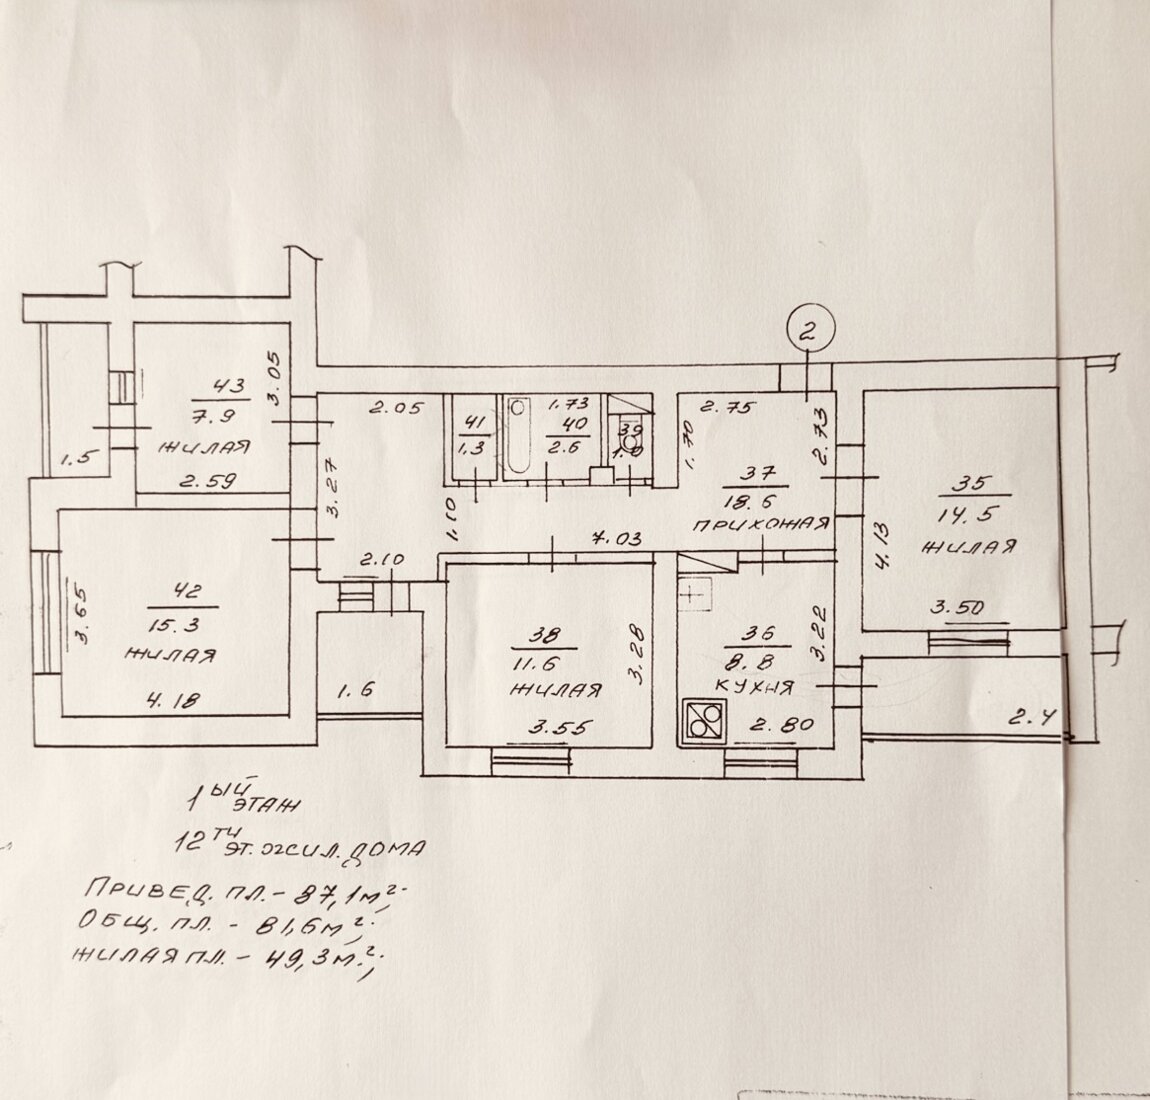 2
43
7.9
ЖИЛАЯ
3.05
2.59
1.5
2.05
3.27
2.10
41
1.3
1.73
40
2.6
39
1.0
2.75
1.70
2.73
37
18.6
ПРИХОЖАЯ
1.10
7.03
35
14.5
ЖИЛАЯ
4.13
3.50
42
15.3
ЖИЛАЯ
3.65
4.18
1.6
38
11.6
ЖИЛАЯ
3.28
3.55
36
8.8
КУХНЯ
3.22
2.80
2.4
1ЫЙ ЭТАЖ
12ТИ ЭТ. ЖИЛ. ДОМА
ПРИВЕД. ПЛ. - 87,1 м².;
ОБЩ. ПЛ. - 81,6 м².;
ЖИЛАЯ ПЛ. - 49,3 м.²;